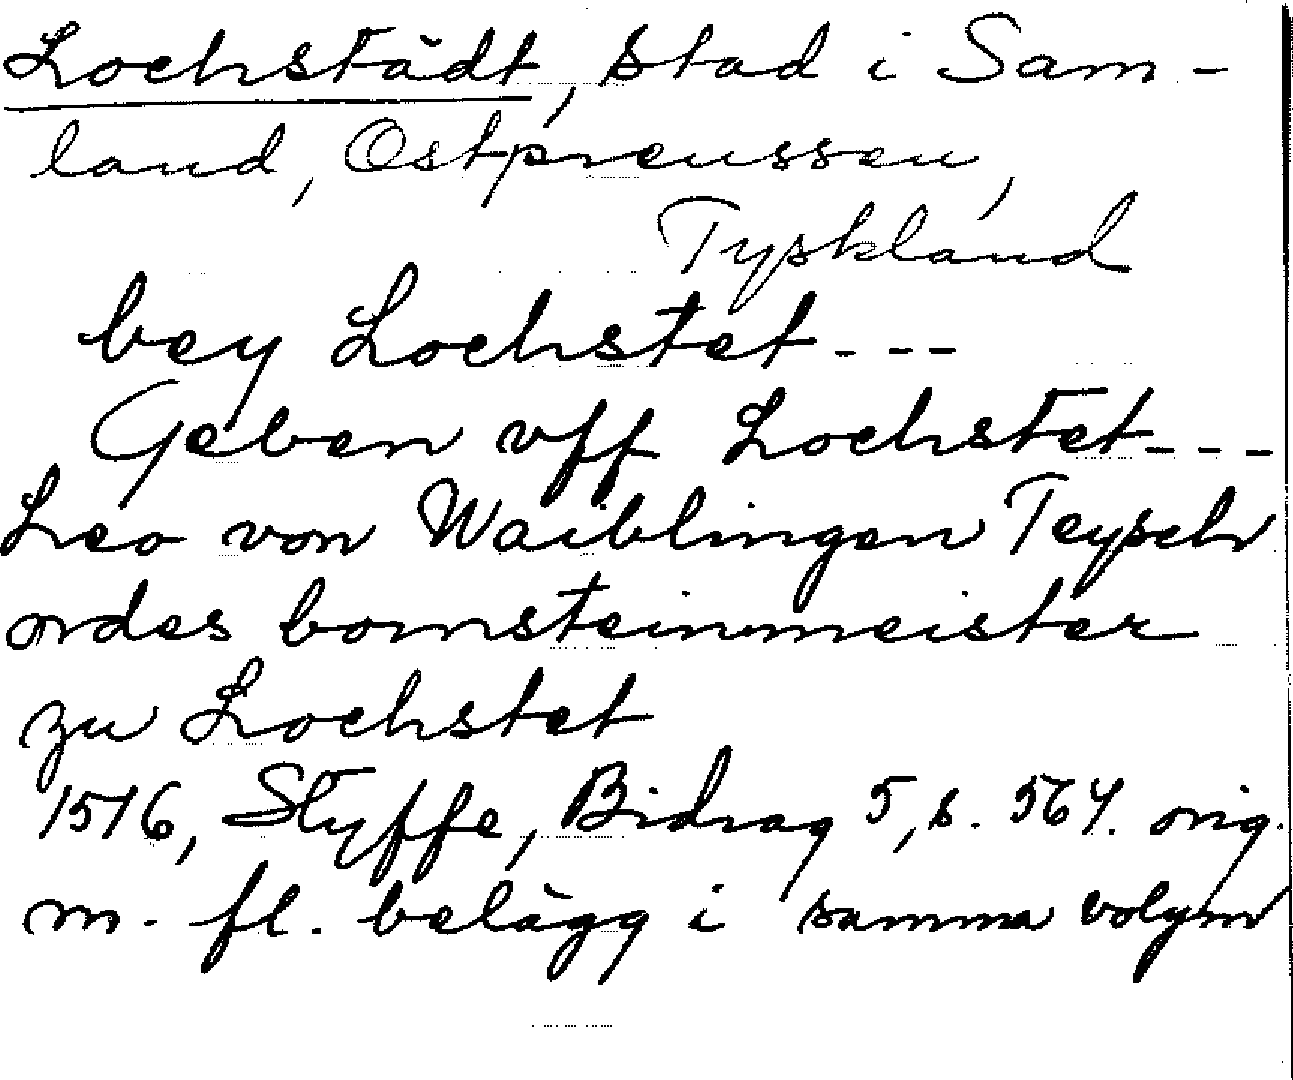 Lochstädt, stad i Sam-
land, Ostpreussen,
Tyskland
bey Lochstet---
Geben vff Lochstet---
Leo von Waiblingen Teysch
ordes bornsteinmeister
zu Lochstet
1516, Styffe, Bidrag 5, s. 564. orig.
m. fl. belägg i samma volym